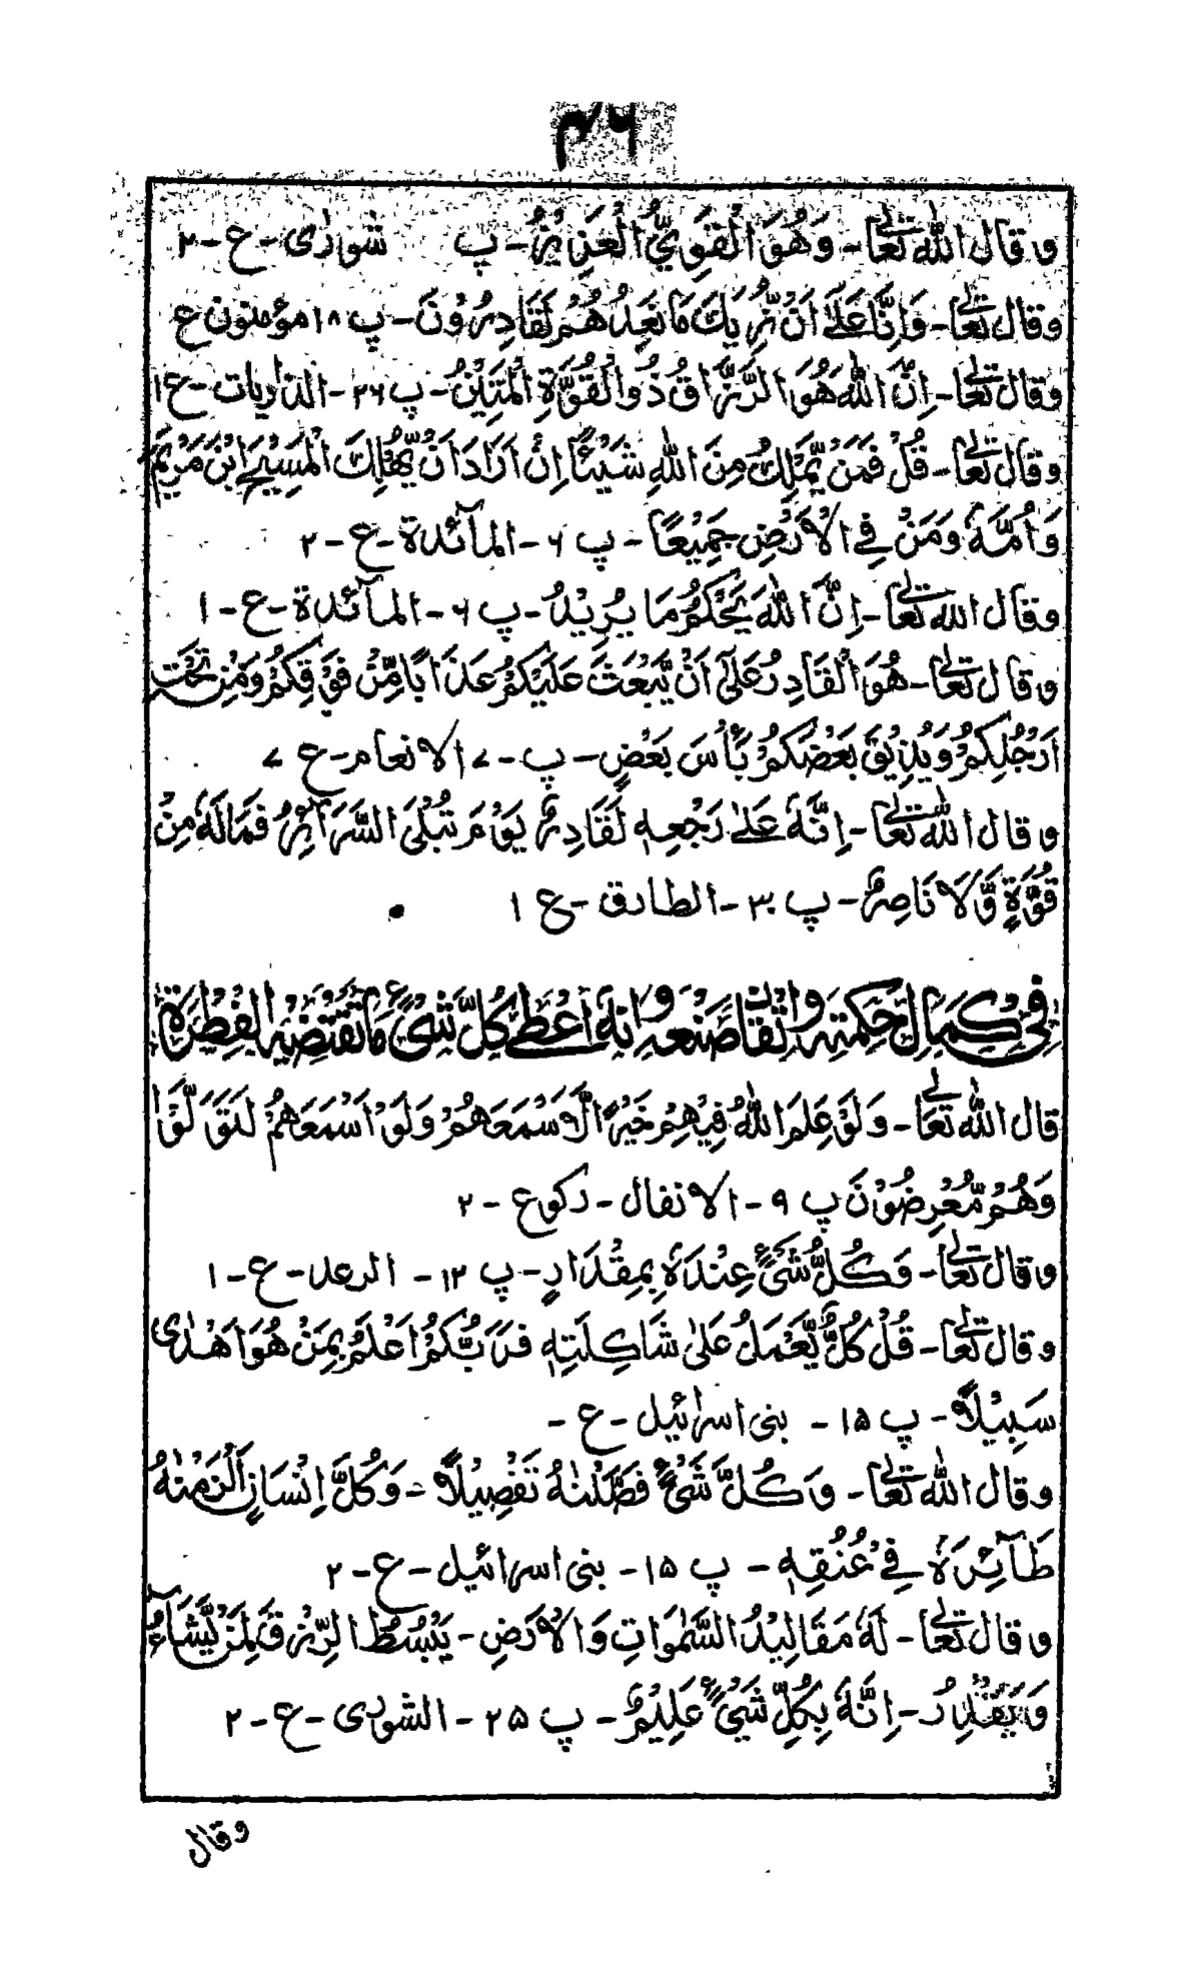 ۴۶
وقال اللہ تعالٰی - وَهُوَ الْقَوِيُّ الْعَزِيْزُ - پ شوریٰ - ع - ۲
وقال تعالٰی - وَاِنَّا عَلٰٓى اَنْ نُّرِيَكَ مَا نَعِدُهُمْ لَقَادِرُوْنَ - پ ۱۸ مؤمنون ع
وقال تعالٰی - اِنَّ اللّٰهَ هُوَ الرَّزَّاقُ ذُو الْقُوَّةِ الْمَتِيْنُ - پ ۲۶ - الذاریات - ع ۱
وقال تعالٰی - قُلْ فَمَنْ يَّمْلِكُ مِنَ اللّٰهِ شَيْئًا اِنْ اَرَادَ اَنْ يُّهْلِكَ الْمَسِيْحَ ابْنَ مَرْيَمَ
وَاُمَّهٗ وَمَنْ فِي الْاَرْضِ جَمِيْعًا - پ ۶ - المآئدة - ع - ۲
وقال اللہ تعالٰی - اِنَّ اللّٰهَ يَحْكُمُ مَا يُرِيْدُ - پ ۶ - المآئدة - ع - ۱
وقال تعالٰی - هُوَ الْقَادِرُ عَلٰٓى اَنْ يَّبْعَثَ عَلَيْكُمْ عَذَابًا مِّنْ فَوْقِكُمْ وَمِنْ تَحْتِ
اَرْجُلِكُمْ وَيُذِيْقَ بَعْضَكُمْ بَأْسَ بَعْضٍ - پ - ۷ الانعام - ع ۷
وقال اللہ تعالٰی - اِنَّهٗ عَلٰى رَجْعِهٖ لَقَادِرٌ يَوْمَ تُبْلَى السَّرَآئِرُ فَمَا لَهٗ مِنْ
قُوَّةٍ وَّلَا نَاصِرٍ - پ ۳۰ - الطارق - ع ۱
فِيْ كَمَالِ حِكْمَتِهٖ وَاِتْقَانِ صَنْعِهٖ وَاِنَّهٗ اَعْطٰى كُلَّ شَيْءٍ مَا تَقْتَضِيْهِ الْفِطْرَةُ
قال اللہ تعالٰی - وَلَوْ عَلِمَ اللّٰهُ فِيْهِمْ خَيْرًا لَّاَسْمَعَهُمْ وَلَوْ اَسْمَعَهُمْ لَتَوَلَّوْا
وَهُمْ مُّعْرِضُوْنَ پ ۹ - الانفال - رکوع - ۲
وقال تعالٰی - وَكُلُّ شَيْءٍ عِنْدَهٗ بِمِقْدَارٍ - پ ۱۳ - الرعد - ع - ۱
وقال تعالٰی - قُلْ كُلٌّ يَّعْمَلُ عَلٰى شَاكِلَتِهٖ فَرَبُّكُمْ اَعْلَمُ بِمَنْ هُوَ اَهْدٰى
سَبِيْلًا - پ ۱۵ - بنی اسرائیل - ع -
وقال اللہ تعالٰی - وَكُلَّ شَيْءٍ فَصَّلْنٰهُ تَفْصِيْلًا - وَكُلَّ اِنْسَانٍ اَلْزَمْنٰهُ
طَآئِرَهٗ فِيْ عُنُقِهٖ - پ ۱۵ - بنی اسرائیل - ع - ۲
وقال تعالٰی - لَهٗ مَقَالِيْدُ السَّمٰوَاتِ وَالْاَرْضِ - يَبْسُطُ الرِّزْقَ لِمَنْ يَّشَآءُ
وَيَقْدِرُ - اِنَّهٗ بِكُلِّ شَيْءٍ عَلِيْمٌ - پ ۲۵ - الشوریٰ - ع - ۲
وقال